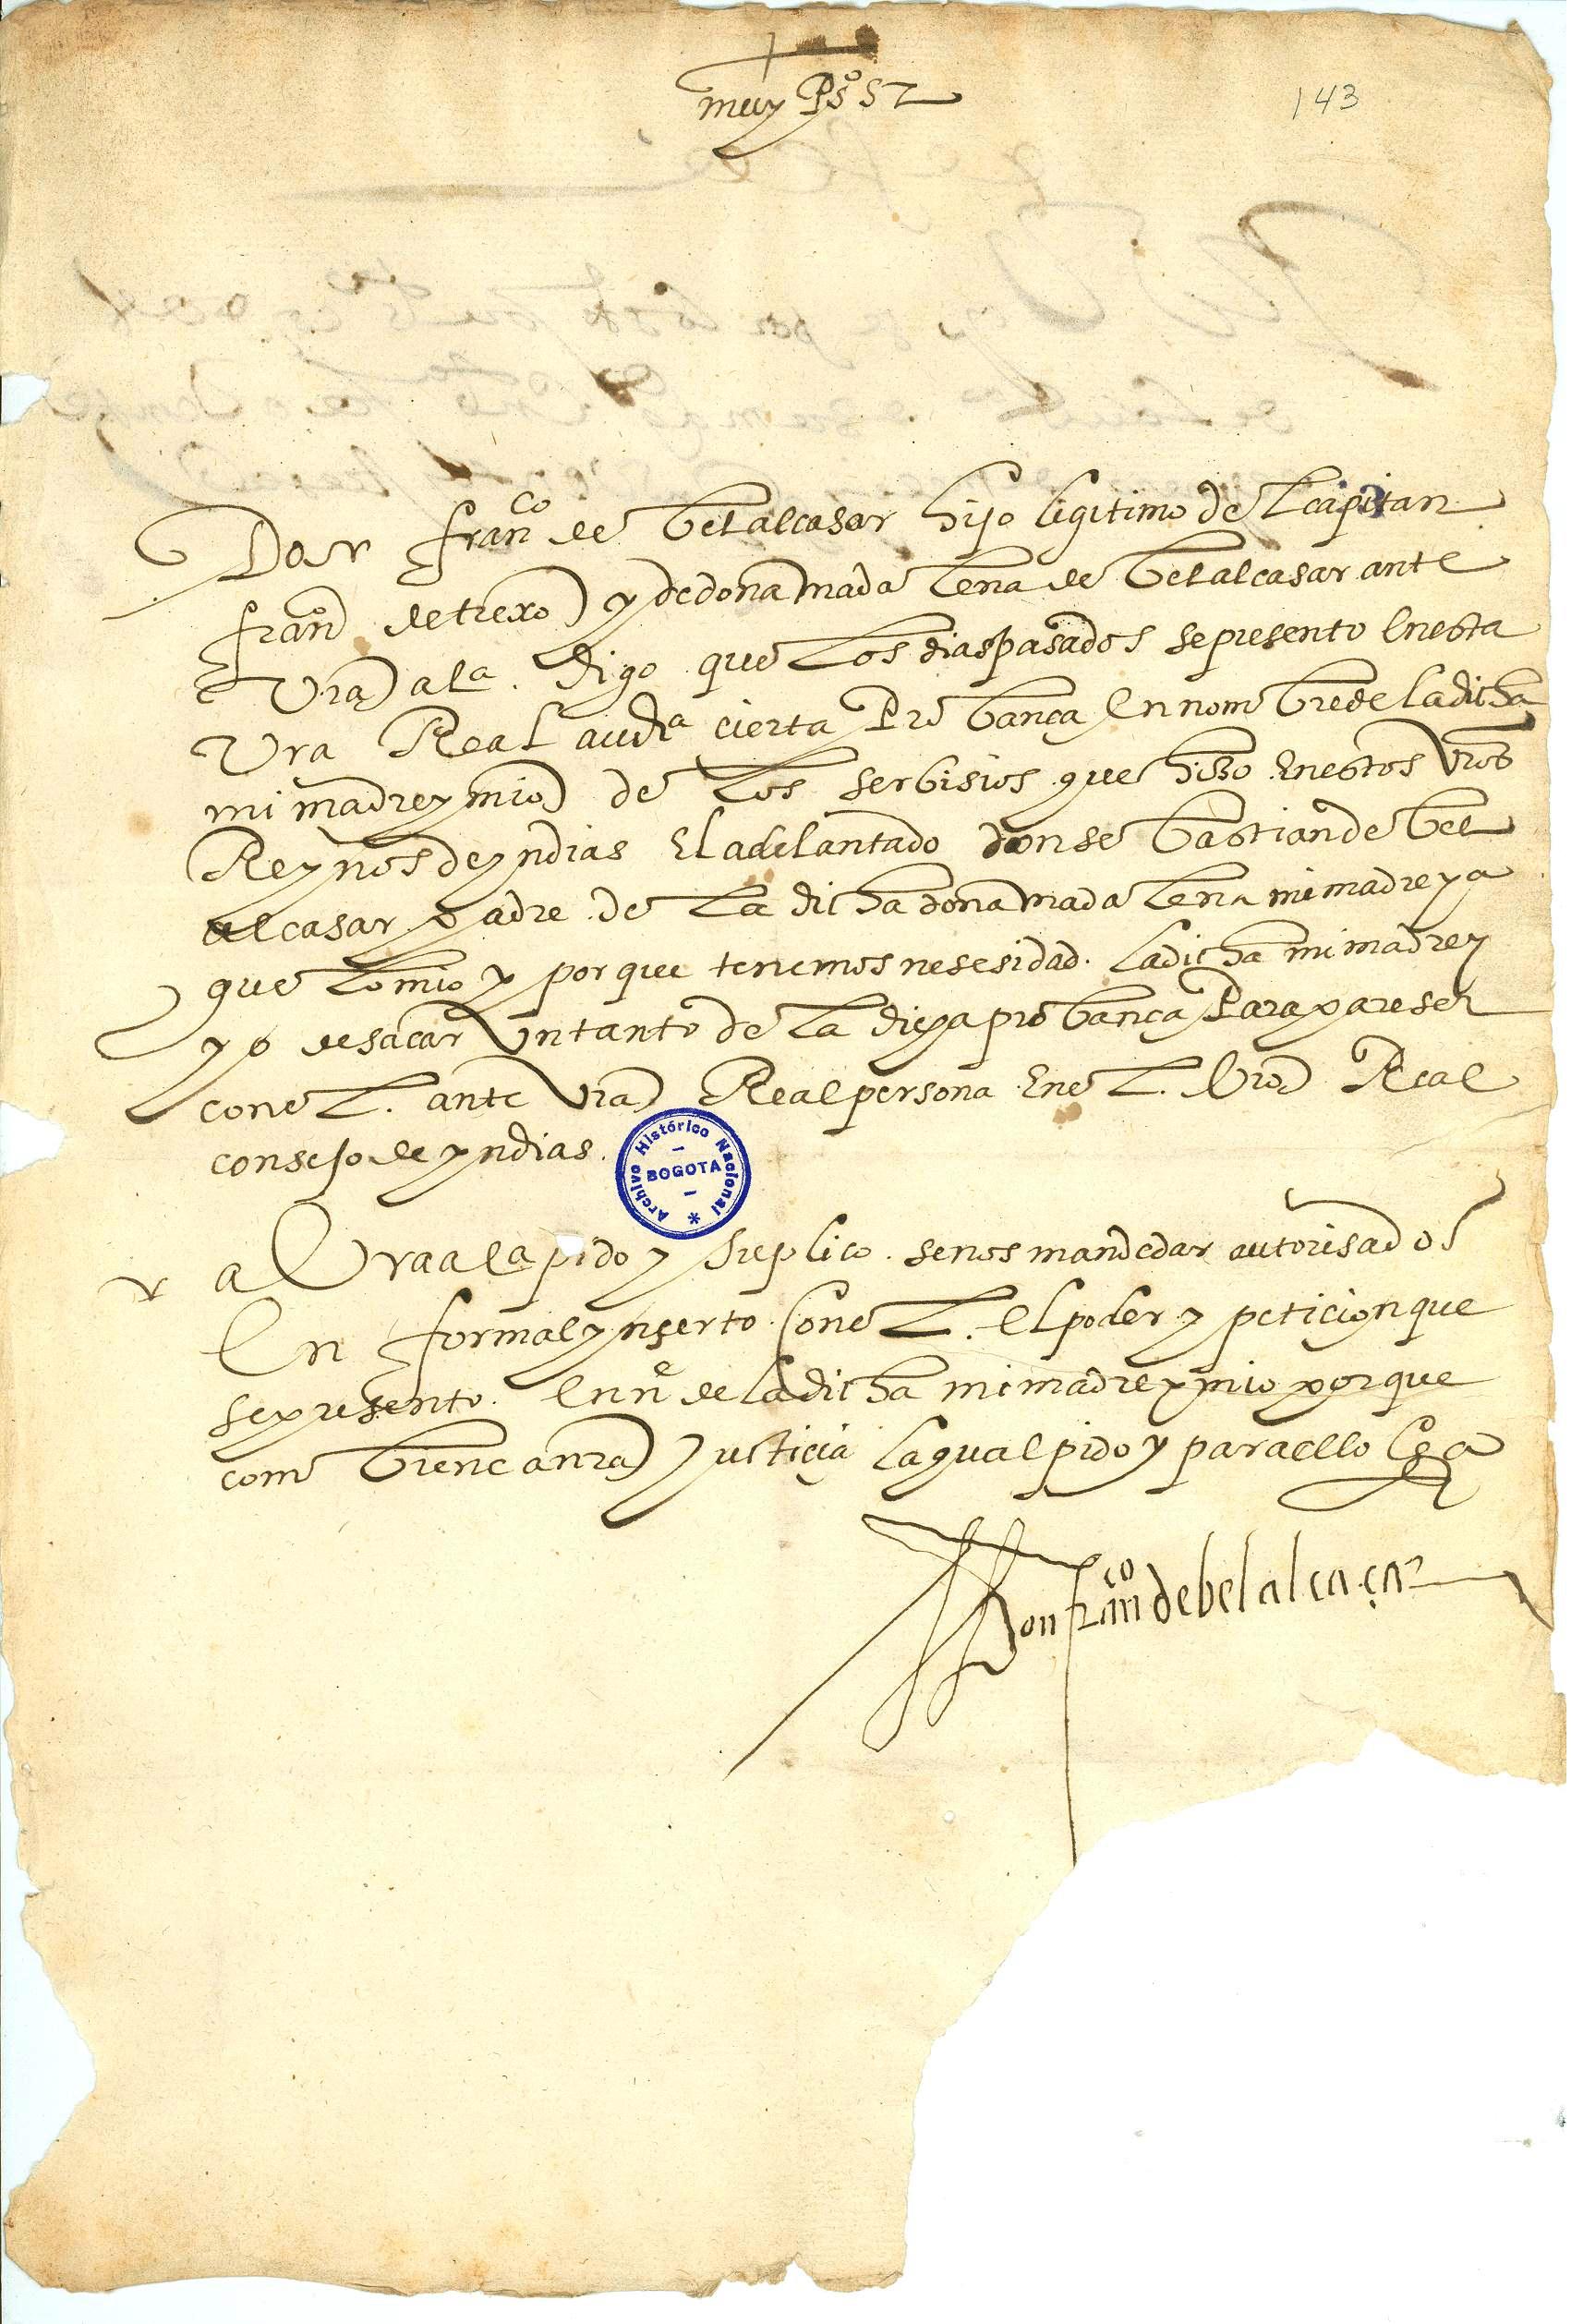 muy P.so Sr
143
Don franco de belalcasar hijo ligitimo del capitan
franco de trexo y de doña madalena de belalcasar ante
vra ala. digo que los dias pasados se presento en esta
vra Real auda cierta provança en nombre de la dicha
mi madre y mio de los serbisios que hiso en estos vros
Reynos de yndias el adelantado don sebastian de bel
alcasar padre de la dicha doña madalena mi madre y a
guelo mio y porque tenemos nesesidad. la dicha mi madre y
yo de sacar un tanto de la dicha probança Para pareser
con el. ante vra Real persona en el. vro Real
consejo de yndias.
Archivo Histórico Nacional
BOGOTA
a vra ala pido y suplico. se nos mande dar autorisado
en forma e ynserto con el. el poder y peticion que
se presento. en ne de la dicha mi madre y mio porque
combiene a nra justicia la qual pido y para ello
Don franco de belalcaçar